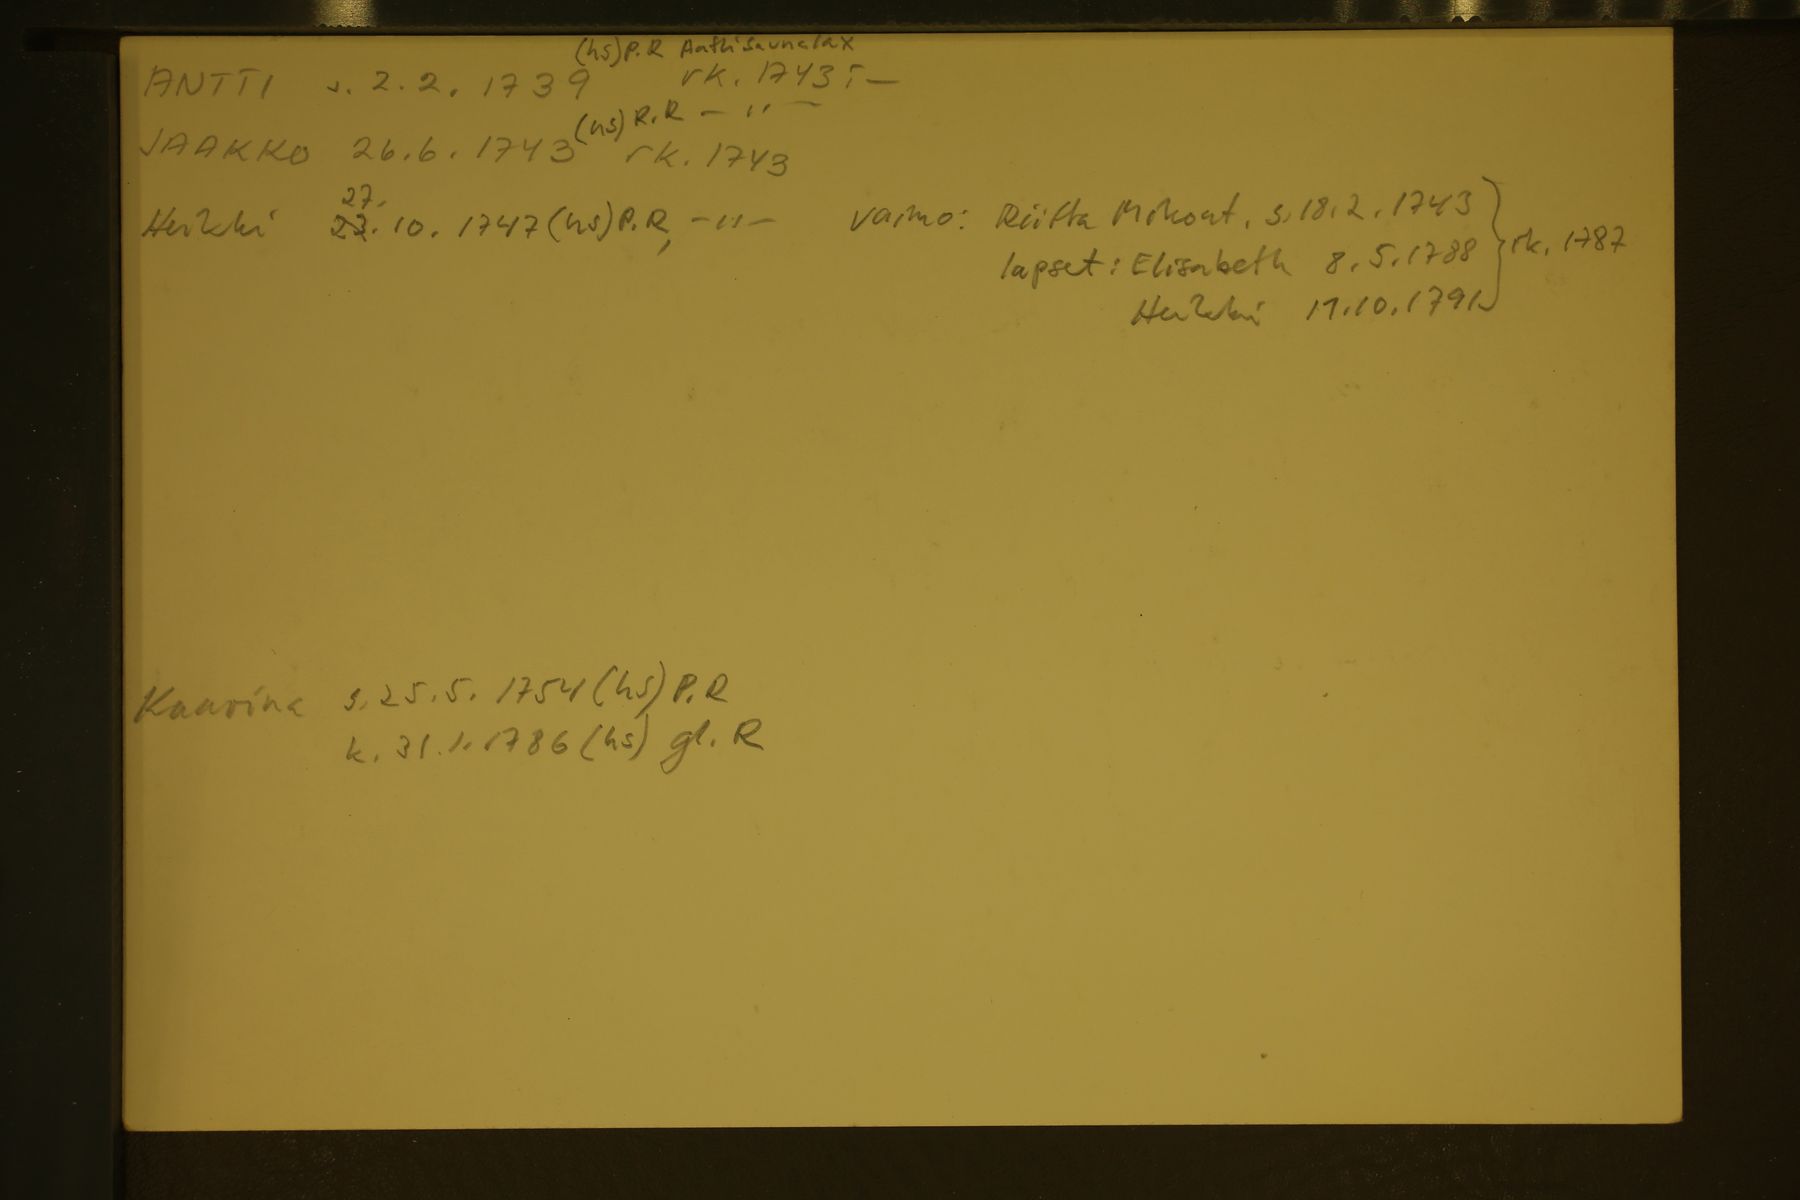 (hs) P.R Anthisaunalax
ANTTI s. 2.2. 1739 rk. 1743
(hs) P.R — '' —
JAAKKO 26.6. 1743 rk. 1743
27.
Heikki 23. 10. 1747 (hs) P.R, — '' — vaimo: Riitta Mikont. s. 18.2.1743
lapset: Elisabeth 8.5.1788 } rk. 1787
Heikki 11.10.1791
Kaarina s. 25.5. 1754 (hs) P.R
k. 31.1.1786 (hs) gl. R